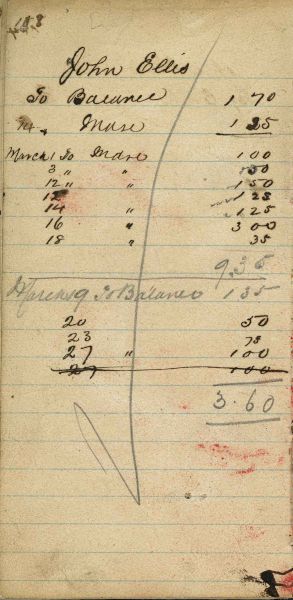 113
John Ellis
To Balance 1 70
14 " Mdse 1 25
March 1 To Mdse 1 00
3 " " 50
12 " " 1 50
12 1 25
14 " 1 25
16 " 3 00
18 " 35
9.35
March 19 To Balance 1 35
20 50
23 75
27 " 1 00
27 1 00
3.60